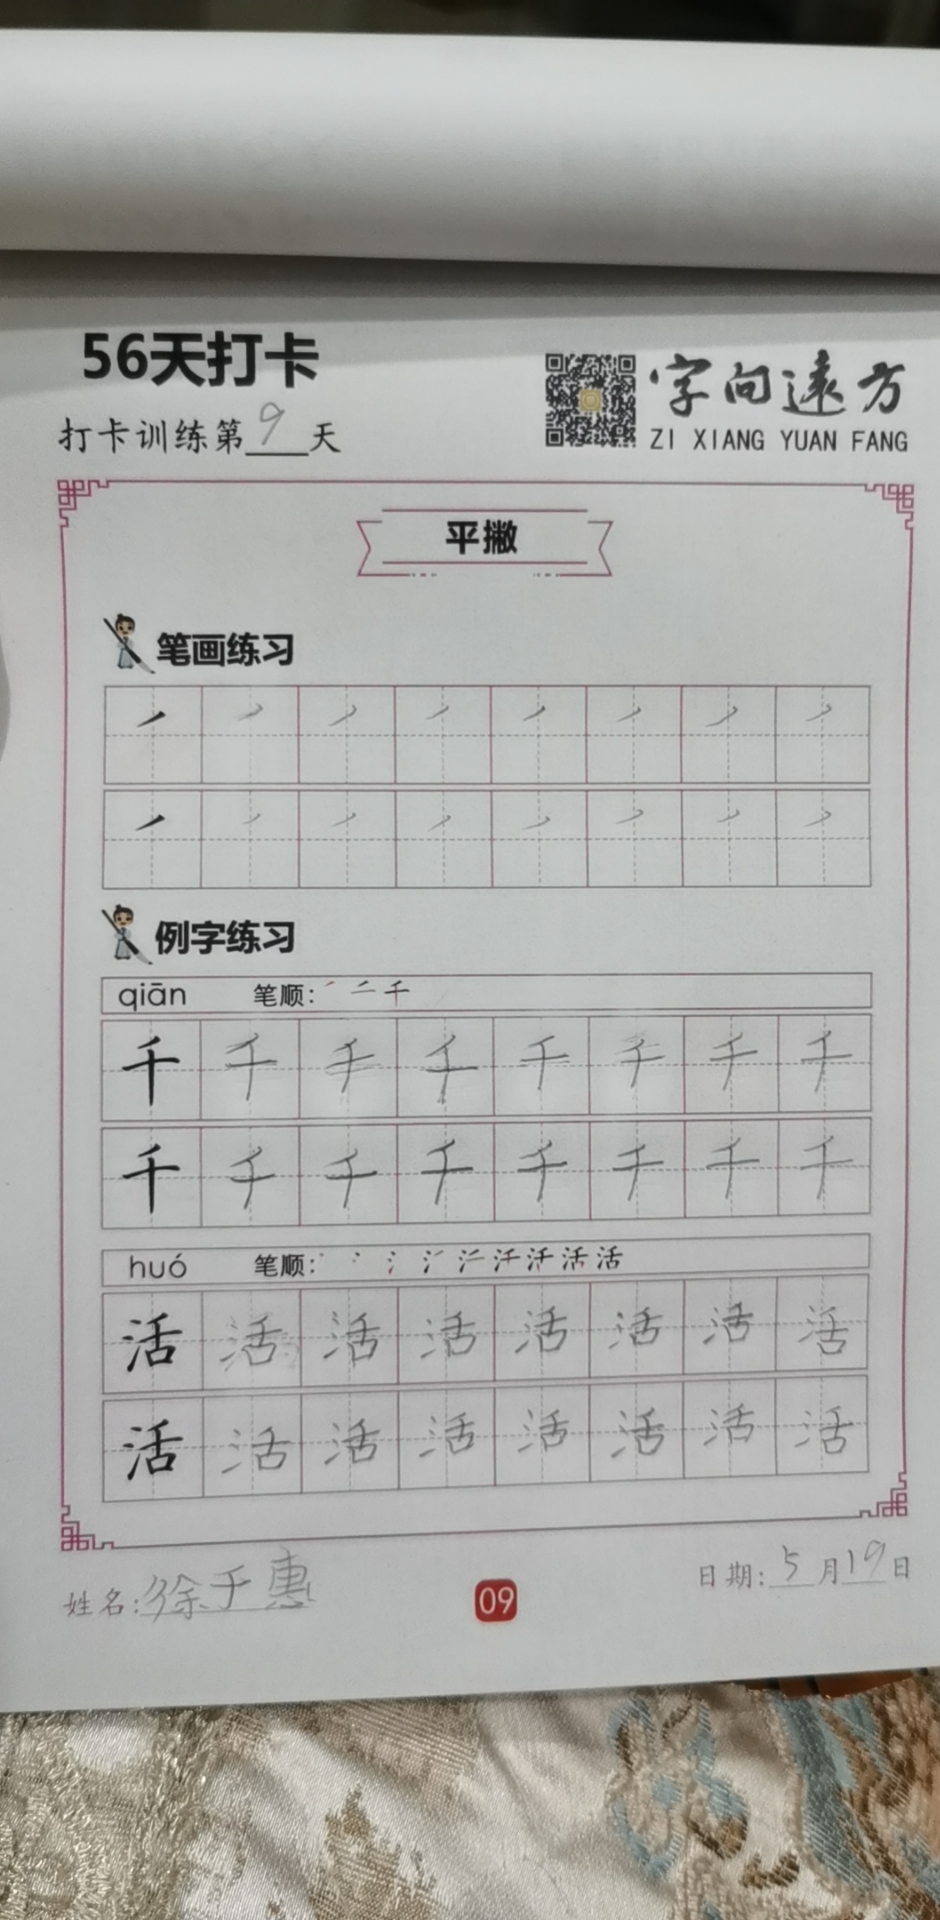 56天打卡
打卡训练第9天
字向遠方
ZI XIANG YUAN FANG
平撇
笔画练习
例字练习
qiān 笔顺: ㇒ 二 千
千 千 千 千 千 千 千 千
千 千 千 千 千 千 千 千
huó 笔顺: 活
活 活 活 活 活 活 活 活
活 活 活 活 活 活 活 活
姓名:徐于惠
09
日期:5月19日